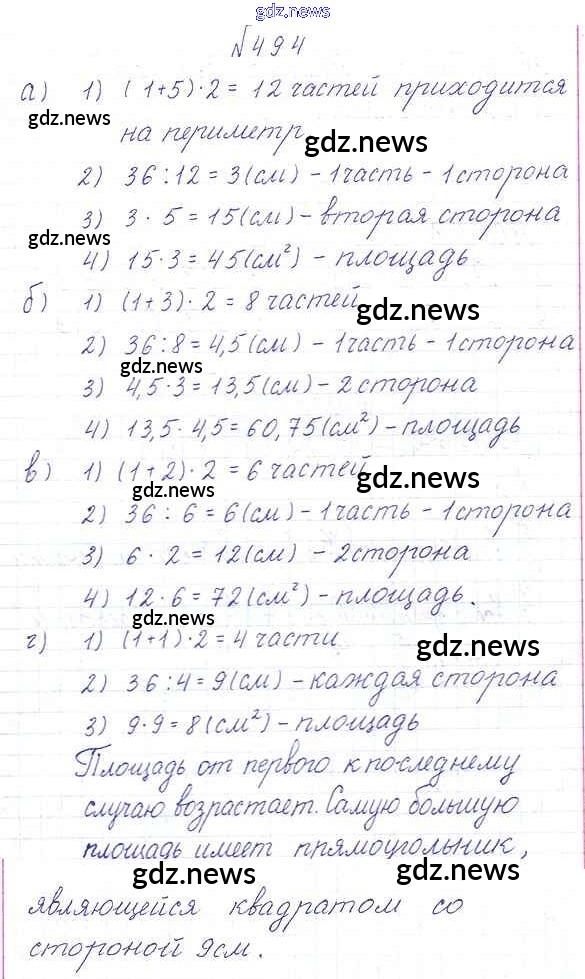 gdz.news
№494
а) 1) (1+5)·2 = 12 частей приходится
gdz.news
на периметр
gdz.news
2) 36:12 = 3(см) – 1часть – 1сторона
3) 3 · 5 = 15(см) – вторая сторона
gdz.news
4) 15·3 = 45(см²) – площадь
б) 1) (1+3)·2 = 8 частей
gdz.news
2) 36:8 = 4,5(см) – 1часть – 1сторона
gdz.news
3) 4,5·3 = 13,5(см) – 2сторона
4) 13,5·4,5 = 60,75(см²) – площадь
в) 1) (1+2)·2 = 6 частей
gdz.news
gdz.news
2) 36 : 6 = 6(см) – 1часть – 1сторона
3) 6 · 2 = 12(см) – 2сторона
4) 12·6 = 72(см²) – площадь.
gdz.news
г) 1) (1+1)·2 = 4 части
gdz.news
2) 36:4 = 9(см) – каждая сторона
3) 9·9 = 8(см²) – площадь
Площадь от первого к последнему
случаю возрастает. Самую большую
площадь имеет прямоугольник,
gdz.news
gdz.news
являющейся квадратом со
стороной 9см.